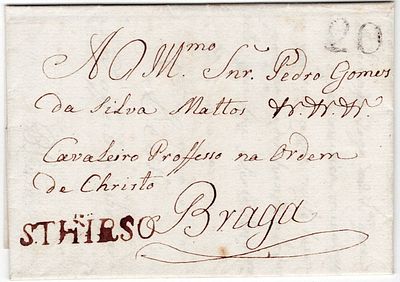 20
A O M.mo Snr. Pedro Gomes
da Silva Mattos &r. &r. &r.
Cavaleiro Proffesso na Ordem
de Christo
Braga
S.THIRSO